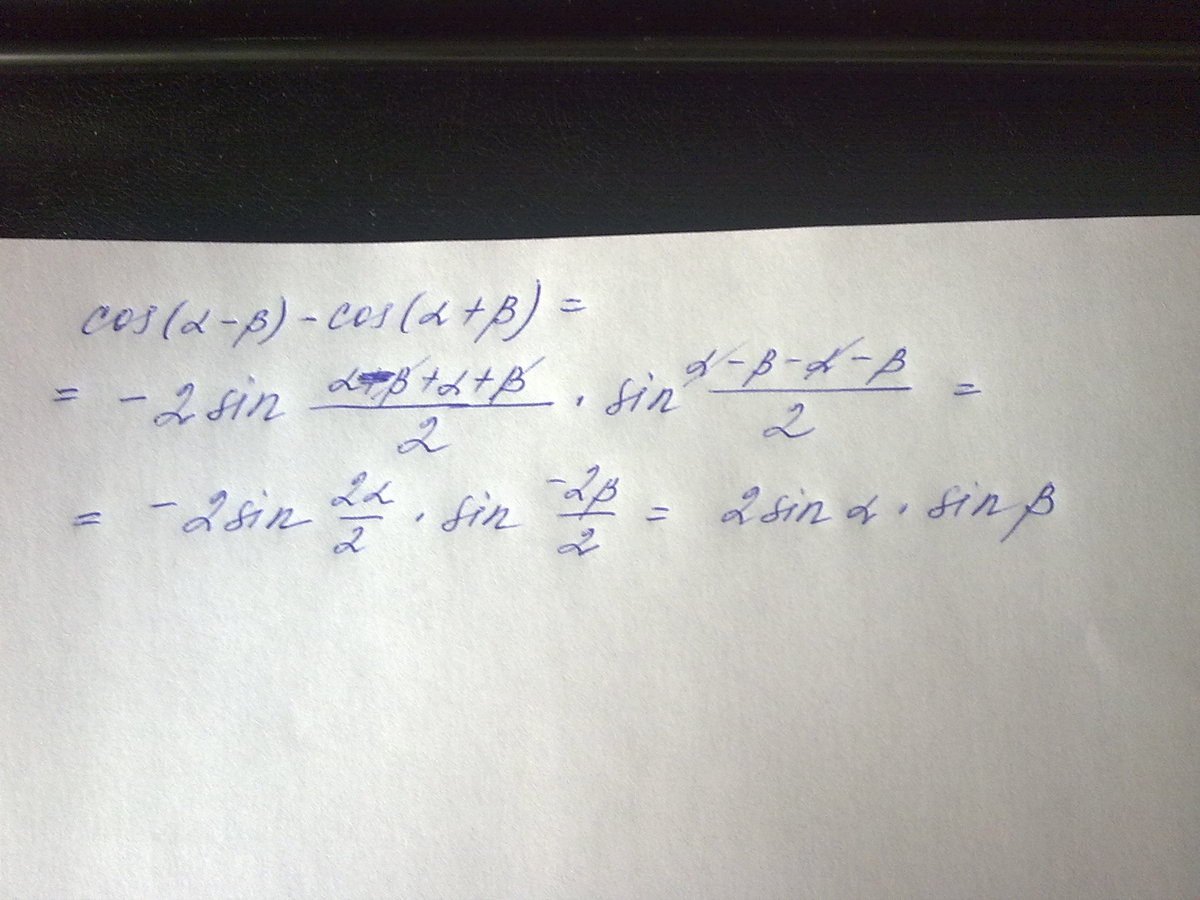 cos(α-β)-cos(α+β)=
= -2 sin (α-β+α+β)/2 · sin (α-β-α-β)/2 =
= -2 sin 2α/2 · sin -2β/2 = 2 sin α · sin β